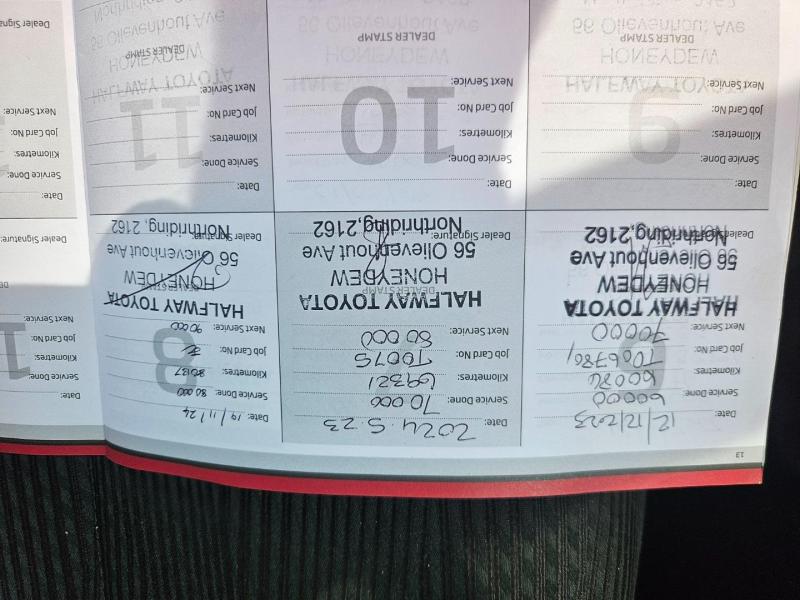 13
6
Date: 12/12/2023
Service Done: 60000
Kilometres: 60086
Job Card No:
Next Service: 70000
HALFWAY TOYOTA
HONEYDEW
56 Olievenhout Ave
Northriding, 2162
Dealer
Date: 2024.5.23
Service Done: 70 000
Kilometres: 69321
Job Card No: T0075
Next Service: 80 000
DEALER STAMP
HALFWAY TOYOTA
HONEYDEW
56 Olievenhout Ave
Northriding, 2162
Dealer Signature:
8
Date: 19/11/24
Service Done: 80 000
Kilometres:
Job Card No:
Next Service: 90 000
HALFWAY TOYOTA
HONEYDEW
56 Olievenhout Ave
Northriding, 2162
Dealer Signature:
9
Date:
Service Done:
Kilometres:
Job Card No:
Next Service:
DEALER STAMP
10
Date:
Service Done:
Kilometres:
Job Card No:
Next Service:
DEALER STAMP
11
Date:
Service Done:
Kilometres:
Job Card No:
Next Service:
DEALER STAMP
Date:
Service Done:
Kilometres:
Job Card No:
Next Service:
Dealer Signature:
Date:
Service Done:
Kilometres:
Job Card No:
Next Service: